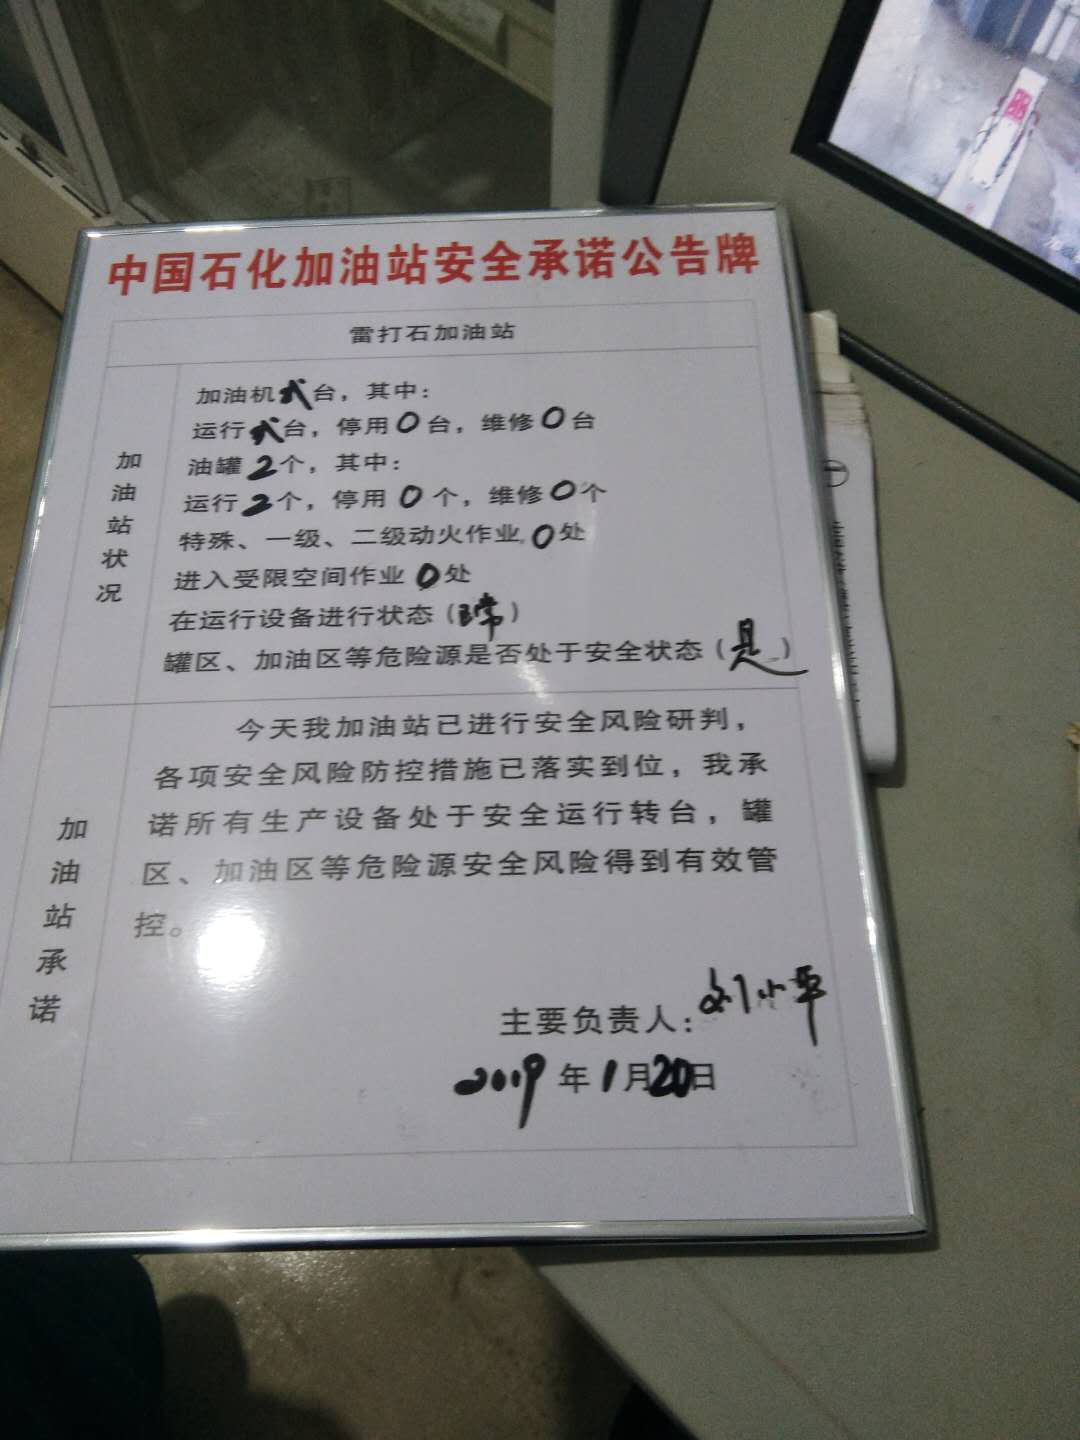 中国石化加油站安全承诺公告牌
雷打石加油站
加油站状况
加油机 台，其中：
运行 台，停用0台，维修0台
油罐2个，其中：
运行2个，停用0个，维修0个
特殊、一级、二级动火作业0处
进入受限空间作业0处
在运行设备进行状态（正常）
罐区、加油区等危险源是否处于安全状态（是）
加油站承诺
今天我加油站已进行安全风险研判，
各项安全风险防控措施已落实到位，我承
诺所有生产设备处于安全运行转台，罐
区、加油区等危险源安全风险得到有效管
控。
主要负责人：刘小平
2019年1月20日